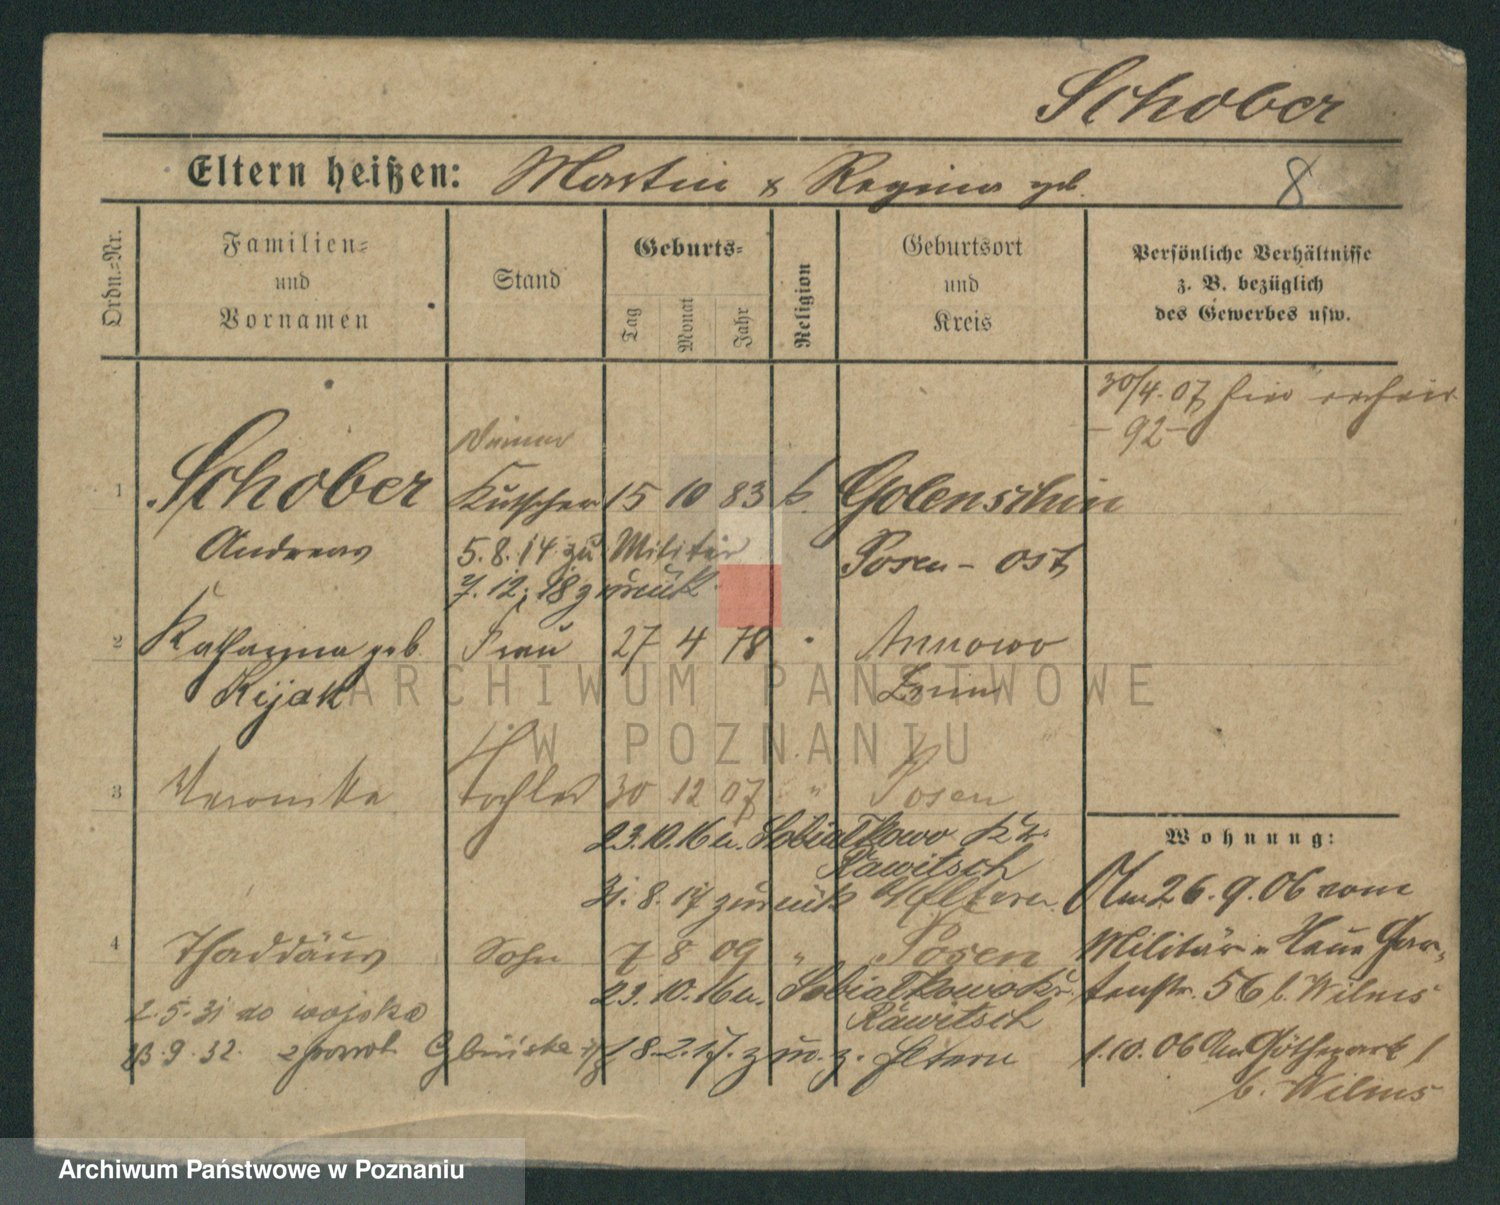 Schober
Eltern heißen: Martin & Regina geb. 8
Ordn.=Nr.
Familien=
und
Vornamen
Stand
Geburts=
Tag
Monat
Jahr
Religion
Geburtsort
und
Kreis
Persönliche Verhältnisse
z. B. bezüglich
des Gewerbes usw.
30/4.07 hier
- 92 -
1 Schober Kutscher 15 10 83 k. Golenschin
Andreas 5.8.14 zu Militär Posen - Ost
7.12.18 zurück
2 Katharina geb. Frau 27 4 78 Annowo
Kijak Znin
3 Veronika Tochter 30 12 07 " Posen
23.10.16 n. Sobialkowo Kr.
Rawitsch
31.8.17 zurück Eltern
4 Thaddäus Sohn 7 8 09 " Posen
23.10.16 n. Sobialkowo Kr.
2.5.31 do wojska Rawitsch
23.9.32. z powrot. 18.2.17. zur. z. Eltern
Wohnung:
Am 26.9.06 vom
Militär n. Neue Gar-
tenstr. 56 b. Wilms
1.10.06 Am Göthepark 1
b. Wilms
ARCHIWUM PAŃSTWOWE
W POZNANIU
Archiwum Państwowe w Poznaniu